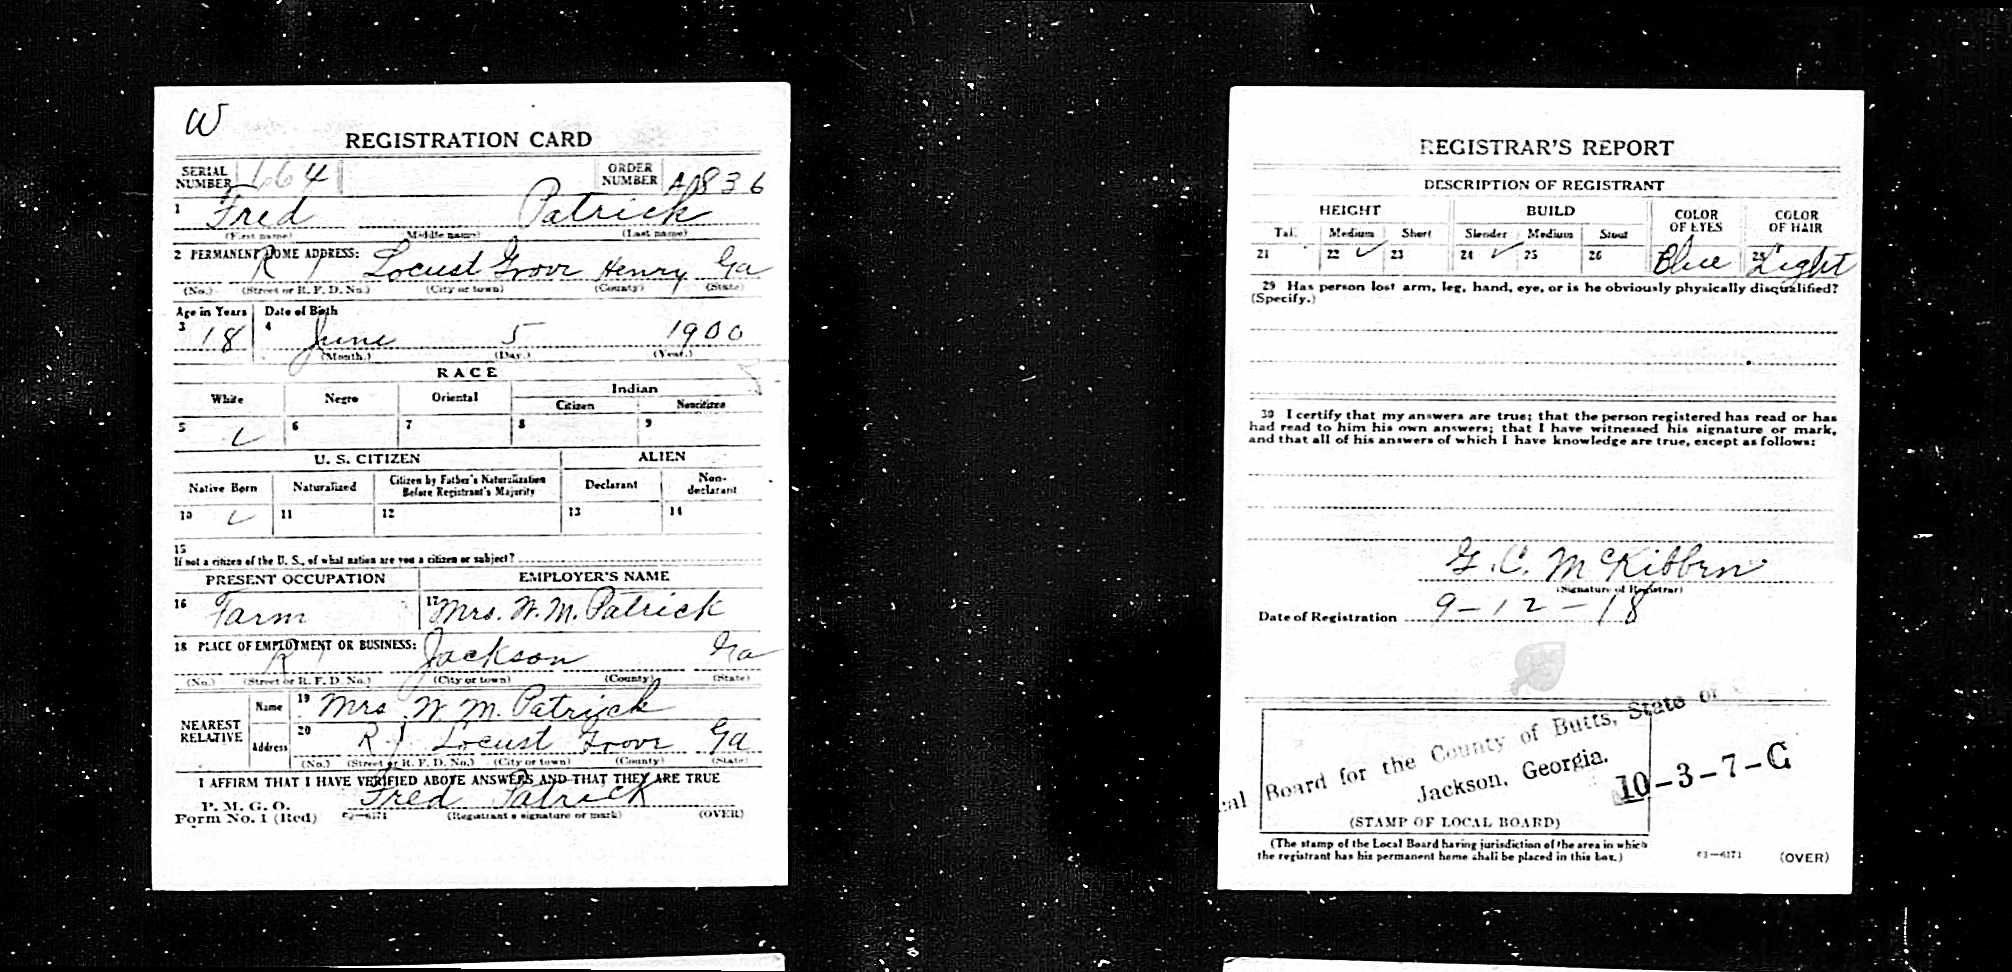 W
REGISTRATION CARD
SERIAL NUMBER 664 ORDER NUMBER A1836
1 Fred Patrick
(First name) (Middle name) (Last name)
2 PERMANENT HOME ADDRESS: R 1 Locust Grove Henry Ga
(No.) (Street or R. F. D. No.) (City or town) (County) (State)
Age in Years Date of Birth
3 18 4 June 5 1900
(Month.) (Day.) (Year.)
RACE
White Negro Oriental Indian
Citizen Noncitizen
5 ✓ 6 7 8 9
U. S. CITIZEN ALIEN
Native Born Naturalized Citizen by Father's Naturalization Before Registrant's Majority Declarant Non-declarant
10 ✓ 11 12 13 14
15
If not a citizen of the U. S., of what nation are you a citizen or subject?
PRESENT OCCUPATION EMPLOYER'S NAME
16 Farm 17 Mrs. W. M. Patrick
18 PLACE OF EMPLOYMENT OR BUSINESS: R 1 Jackson Ga
(No.) (Street or R. F. D. No.) (City or town) (County) (State)
NEAREST RELATIVE Name 19 Mrs W M. Patrick
Address 20 R 1 Locust Grove Ga
(No.) (Street or R. F. D. No.) (City or town) (County) (State)
I AFFIRM THAT I HAVE VERIFIED ABOVE ANSWERS AND THAT THEY ARE TRUE
P. M. G. O.
Form No. 1 (Red) Fred Patrick
(Registrant's signature or mark) (OVER)
REGISTRAR'S REPORT
DESCRIPTION OF REGISTRANT
HEIGHT BUILD COLOR OF EYES COLOR OF HAIR
Tall Medium Short Slender Medium Stout
21 22 ✓ 23 24 ✓ 25 26 Blue 28 Light
29 Has person lost arm, leg, hand, eye, or is he obviously physically disqualified?
(Specify.)
30 I certify that my answers are true; that the person registered has read or has
had read to him his own answers; that I have witnessed his signature or mark,
and that all of his answers of which I have knowledge are true, except as follows:
G. C. McKibben
(Signature of Registrar)
Date of Registration 9-12-18
Board for the County of Butts, State of
Jackson, Georgia.
10-3-7-G
(STAMP OF LOCAL BOARD)
(The stamp of the Local Board having jurisdiction of the area in which
the registrant has his permanent home shall be placed in this box.)
(OVER)